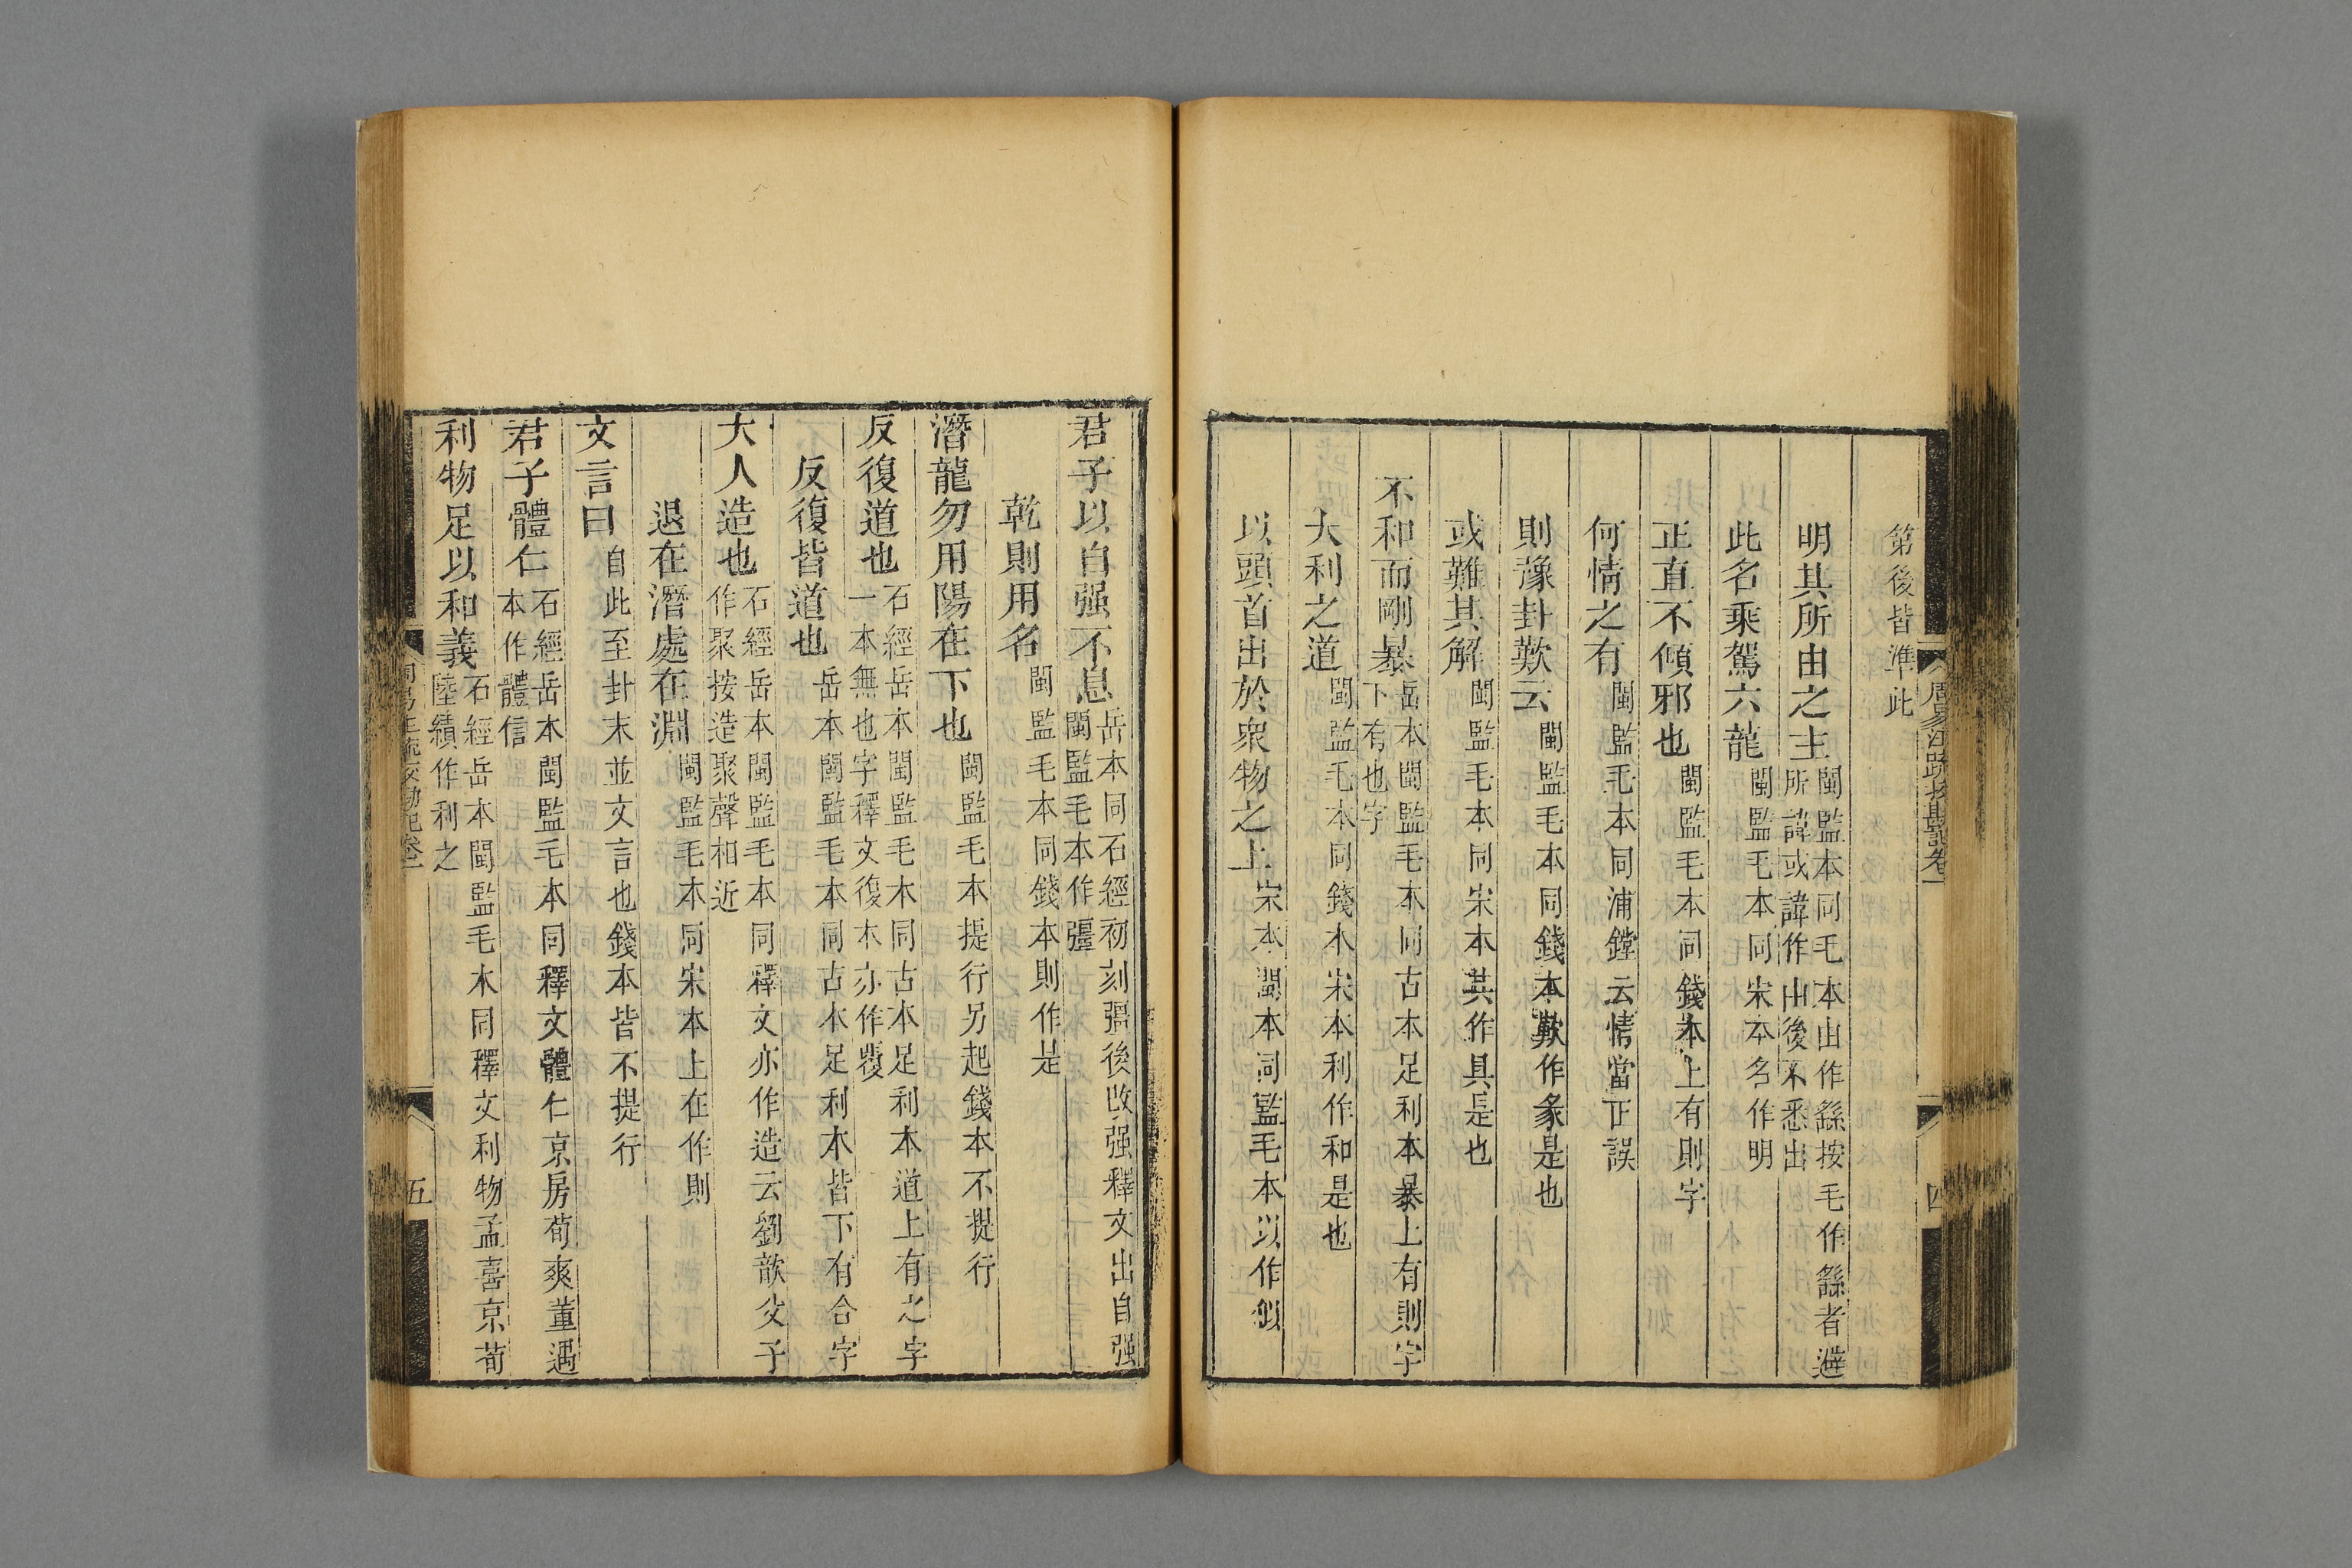 第後皆準此
明其所由之主閩監本同毛本由作繇按毛作繇者避所諱或諱作由後不悉出
此名乘駕六龍閩監毛本同宋本名作明
正直不傾邪也閩監毛本同錢本上有則字
何情之有閩監毛本同浦鏜云情當正誤
則豫卦歎云閩監毛本同錢本歎作彖是也
或難其解閩監毛本同宋本其作具是也
不和而剛暴岳本閩監毛本同古本足利本暴上有則字下有也字
大利之道閩監毛本同錢本宋本利作和是也
以頭首出於衆物之上宋本閩本同監毛本以作似
周易注疏挍勘記卷一
四
君子以自强不息岳本同石經初刻彊後改强釋文出自强閩監毛本作彊
乾則用名閩監毛本同錢本則作是
潛龍勿用陽在下也閩監毛本提行另起錢本不提行
反復道也石經岳本閩監毛本同古本足利本道上有之字一本無也字釋文復本亦作覆
反復皆道也岳本閩監毛本同古本足利本皆下有合字
大人造也石經岳本閩監毛本同釋文亦作造云劉歆父子作聚按造聚聲相近
退在潛處在淵閩監毛本同宋本上在作則
文言曰自此至卦末並文言也錢本皆不提行
君子體仁石經岳本閩監毛本同釋文體仁京房荀爽董遇本作體信
利物足以和義石經岳本閩監毛本同釋文利物孟喜京荀陸績作利之
周易注疏挍勘記卷一
五